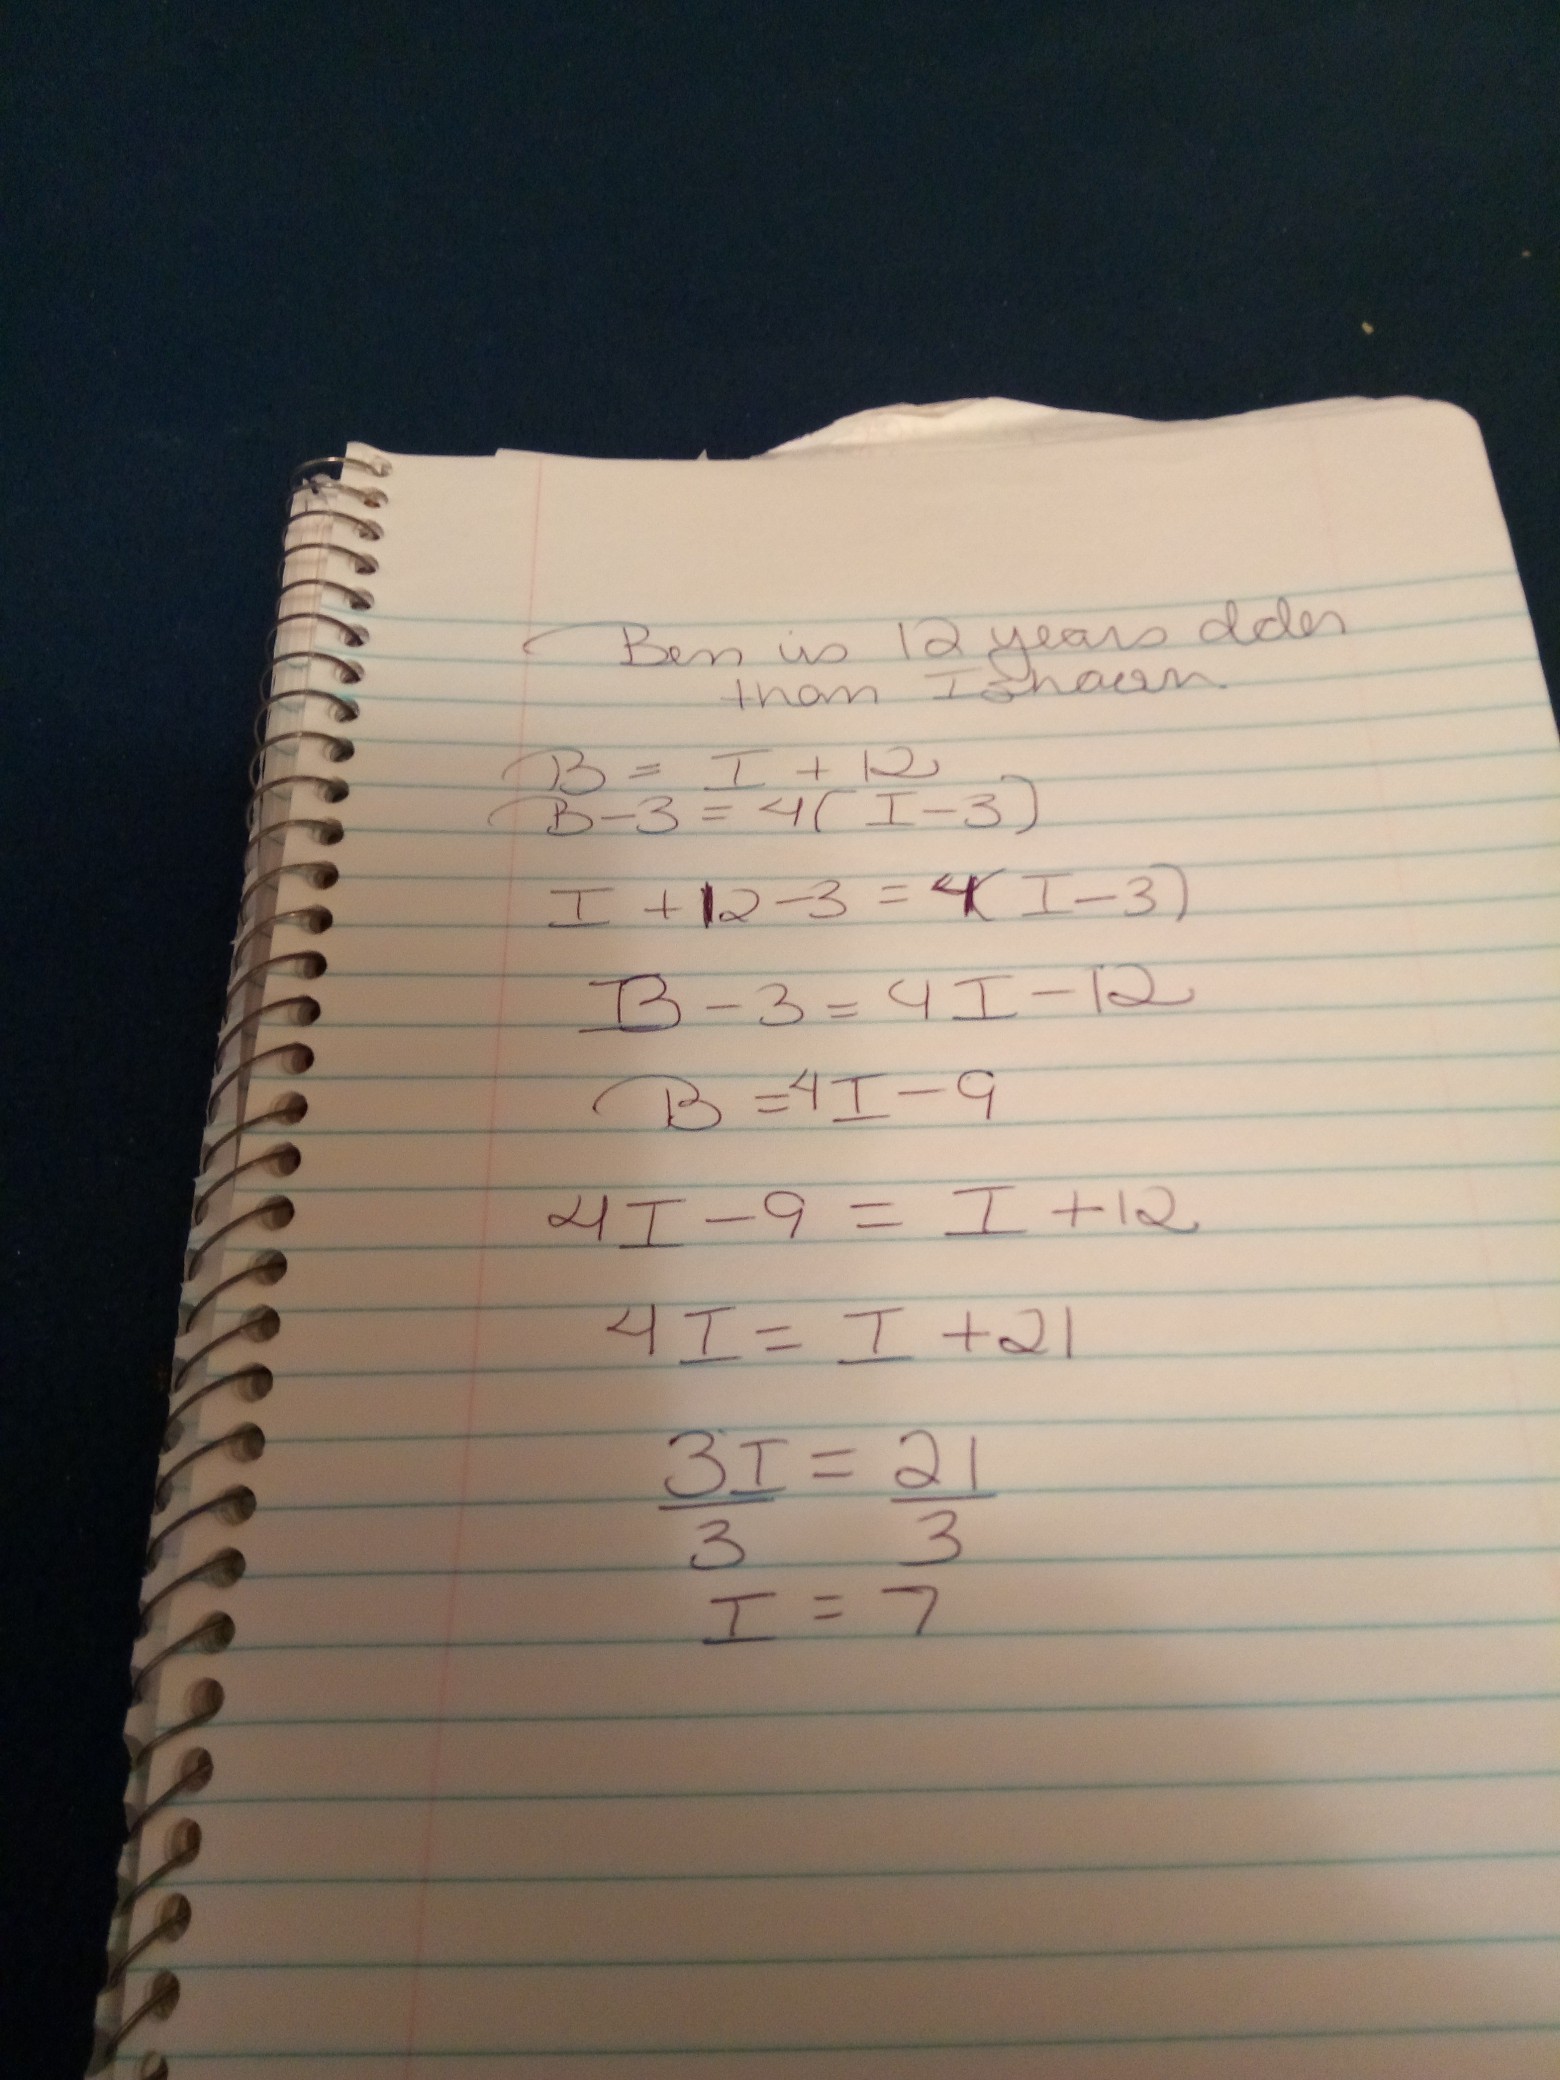 Ben is 12 years older
than Ishaan
B = I + 12
B - 3 = 4( I - 3)
I + 12 - 3 = 4( I - 3)
B - 3 = 4I - 12
B = 4I - 9
4I - 9 = I + 12
4I = I + 21
3I = 21
3 3
I = 7